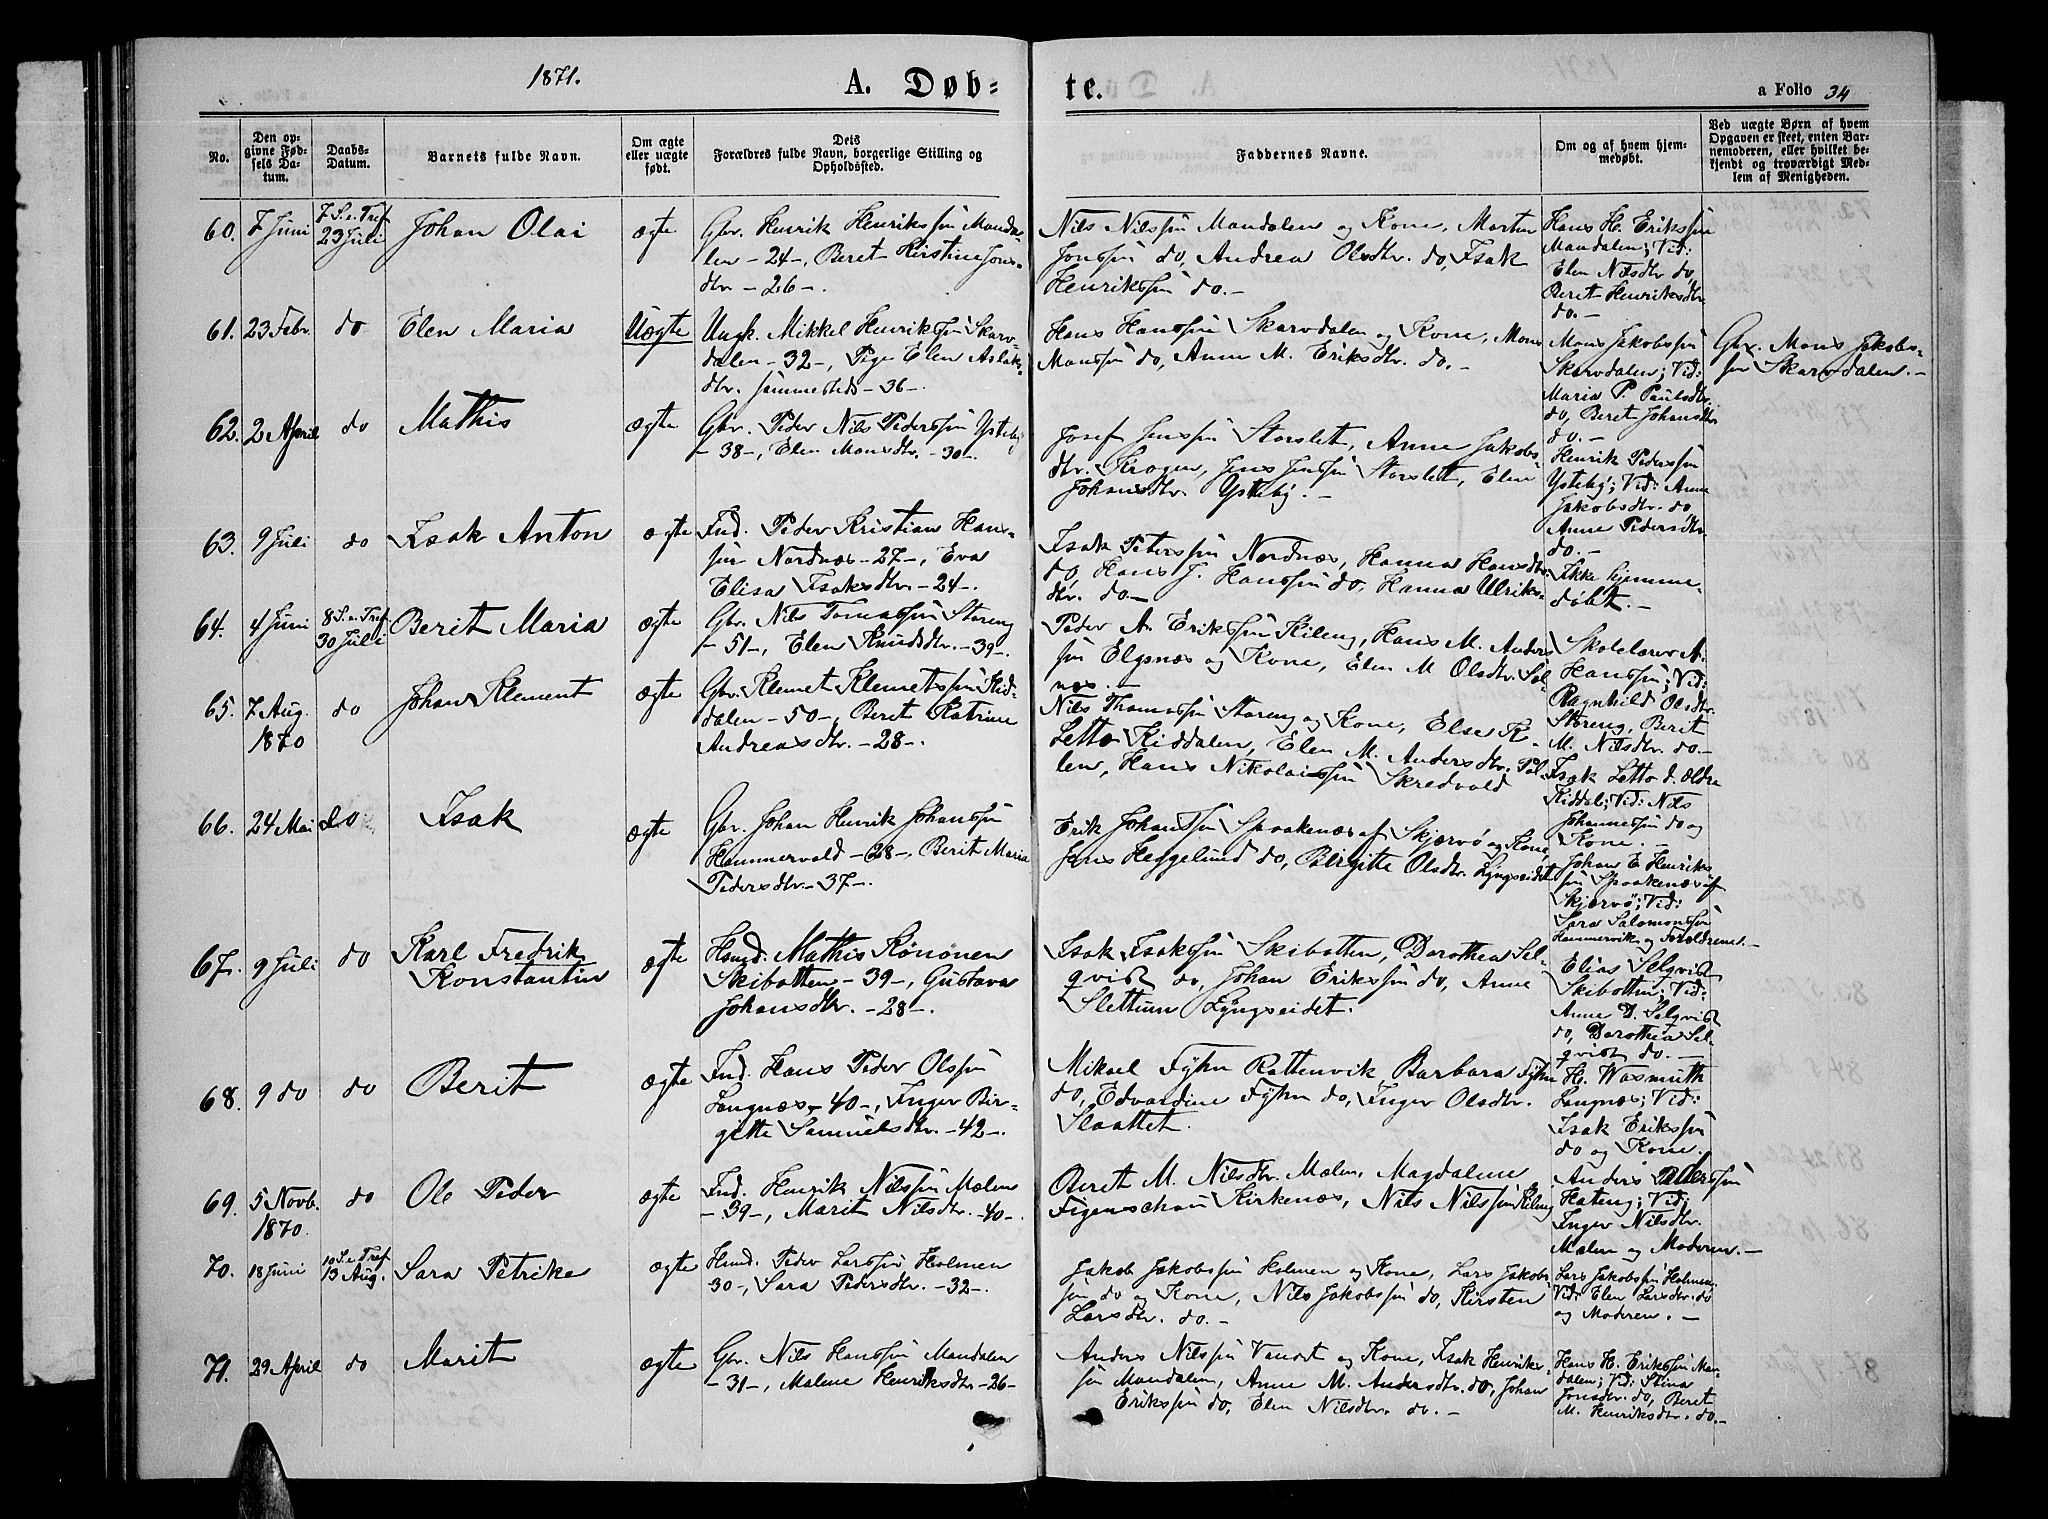 1871.
A. Døb=
te.
a Folio 34
No.
Den op=
givne Fød=
sels Da=
tum.
Daabs=
Datum.
Barnets fulde Navn.
Om ægte
eller uægte
født.
Dets
Forældres fulde Navn, borgerlige Stilling og
Opholdssted.
Faddernes Navne.
Om og af hvem hjem=
medøbt.
Ved uægte Børn af hvem
Opgaven er skeet, enten Bar=
nemoderen, eller hvilket be=
kjendt og troværdigt Med=
lem af Menigheden.
60. 7 Juni
7 S. e. Tref.
23 Juli
Johan Olai
ægte
Gbr. Henrik Henrikssøn Manda=
len - 24 -, Beret Kirstine Jons=
dtr. - 26 -.
Nils Nilssøn Mandalen og Kone, Morten
Jonssøn do, Andrea Olsdtr. do, Isak
Henrikssøn do. -
Hans H. Erikssøn
Mandalen; Vid:
Elen Nilsdtr. do,
Beret Henriksdtr.
do. -
61. 23 Febr. do
Elen Maria
Uægte
Ungk. Mikkel Henrikssøn Skarv=
dalen - 32 -, Pige Elen Aslaks=
dtr. sammesteds - 36 -.
Hans Hanssøn Skarvdalen og Kone, Mons
Monssøn do, Anne M. Eriksdtr. do. -
Mons Jakobssøn
Skarvdalen; Vid:
Maria P. Paulsdtr.
do, Beret Johansdtr.
do. -
Gbr. Mons Jakobs=
søn Skarvdalen. -
62. 2 April do
Mathis
ægte
Gbr. Peder Nils Pederssøn Ysteby
- 38 -, Elen Monsdtr. - 30 -.
Josef Jenssøn Storslett, Anne Jakobs=
dtr. Krogen, Jens Jenssøn Storslett, Elen
Johansdtr. Ysteby. -
Henrik Pederssøn
Ysteby; Vid: Anne
Jakobsdtr. do
Anne Pedersdtr.
do. -
63. 9 Juli do
Isak Anton
ægte
Ind. Peder Kristian Hans=
søn Nordnæs - 27 -, Eva
Elisa Isaksdtr. - 24 -.
Isak Peterssøn Nordnæs, Hanna Hansdtr.
do, Hans J. Hanssøn do, Hanna Ulriks=
dtr. do. -
Ikke hjemme=
døbt. -
64. 4 Juni
8 S. e. Tref.
30 Juli
Berit Maria
ægte
Gbr. Nils Tomassøn Storeng
- 51 -, Elen Knudsdtr. - 39 -.
Peder A. Erikssøn Kileng, Hans M. Anders=
søn Elgsnæs og Kone, Elen M Olsdtr. Sol=
næs. -
Skolelærer A.
Hanssøn; Vid:
Ragnhild Olsdtr.
Storeng, Berit
M. Nilsdtr. do. -
65. 7 Aug.
1870
do
Johan Klement
ægte
Gbr. Klemet Klemetssøn Kid=
dalen - 50 -, Beret Katrine
Andreasdtr. - 28 -.
Nils Thomassøn Storeng og Kone, Else K.
Letto Kiddalen, Elen M. Andersdtr. Pol=
len, Hans Nikolaissøn Skredvold
Isak Letto d. Ældre
Kiddal; Vid: Nils
Johannessøn do og
Kone. -
66. 24 Mai do
Isak
ægte
Gbr. Johan Henrik Johanssøn
Hammervold - 28 -, Berit Maria
Pedersdtr. - 37 -.
Erik Johanssøn Spaakenæs af Skjærvø og Kone,
Jens Heggelund do, Birgitte Olsdtr. Lyngseidet
Johan E Henriks=
søn Spaakenæs af
Skjærvø; Vid:
Sara Salomonssøn
Hammervik og Forældrene. -
67. 9 Juli do
Karl Fredrik
Konstantin
ægte
Hsmd. Mathis Kønønen
Skibotten - 39 -, Gustava
Johansdtr. - 28 -.
Isak Isakssøn Skibotten, Dorothea Sel=
qvist do, Johan Erikssøn do, Anne
Slettum Lyngseidet.
Elias Selqvist
Skibotten; Vid:
Anne D. Selqvist
do, Dorothea Sel=
qvist do. -
68. 9 do do
Berit
ægte
Ind. Hans Peder Olssøn
Langnæs - 40 -, Inger Bir=
gitte Samuelsdtr. - 42 -.
Mikael Fyhn Rottenvik Barbara Fyhn
do, Edvardine Fyhn do, Inger Olsdtr.
Slaattet.
H. Wasmuth
Langnæs; Vid:
Isak Erikssøn
do og Kone.
69. 5 Novb.
1870.
do
Ole Peder
ægte
Ind. Henrik Nilssøn Malen
- 39 -, Marit Nilsdtr. - 40 -.
Beret M. Nilsdtr. Malen, Magdalene
Figenschau Kirkenæs, Nils Nilssøn Kileng
Anders Pederssøn
Hateng; Vid:
Inger Nilsdtr.
Malen og Moderen. -
70. 18 Juni
10 S. e. Tref.
13 Aug.
Sara Petrike
ægte
Hsmd. Peder Larssøn Holmen
30 -, Sara Pedersdtr. - 32 -.
Jakob Jakobssøn Holmen og Kone, Lars Jakobs=
søn do og Kone, Nils Jakobssøn do, Kirsten
Larsdtr. do. -
Lars Jakobssøn Holmen
Vid: Elen Larsdtr. do
og Moderen. -
71. 29 April do
Marit
ægte
Gbr. Nils Hanssøn Mandalen
- 31 -, Malene Henriksdtr. - 26 -
Anders Nilssøn Vandet og Kone, Isak Henriks=
søn Mandalen, Anne M. Andersdtr. do, Johan
Erikssøn do, Elen Nilsdtr. do. -
Hans H. Erikssøn Man=
dalen; Vid: Stina
Jonsdtr. do, Beret
M. Henriksdtr. do. -